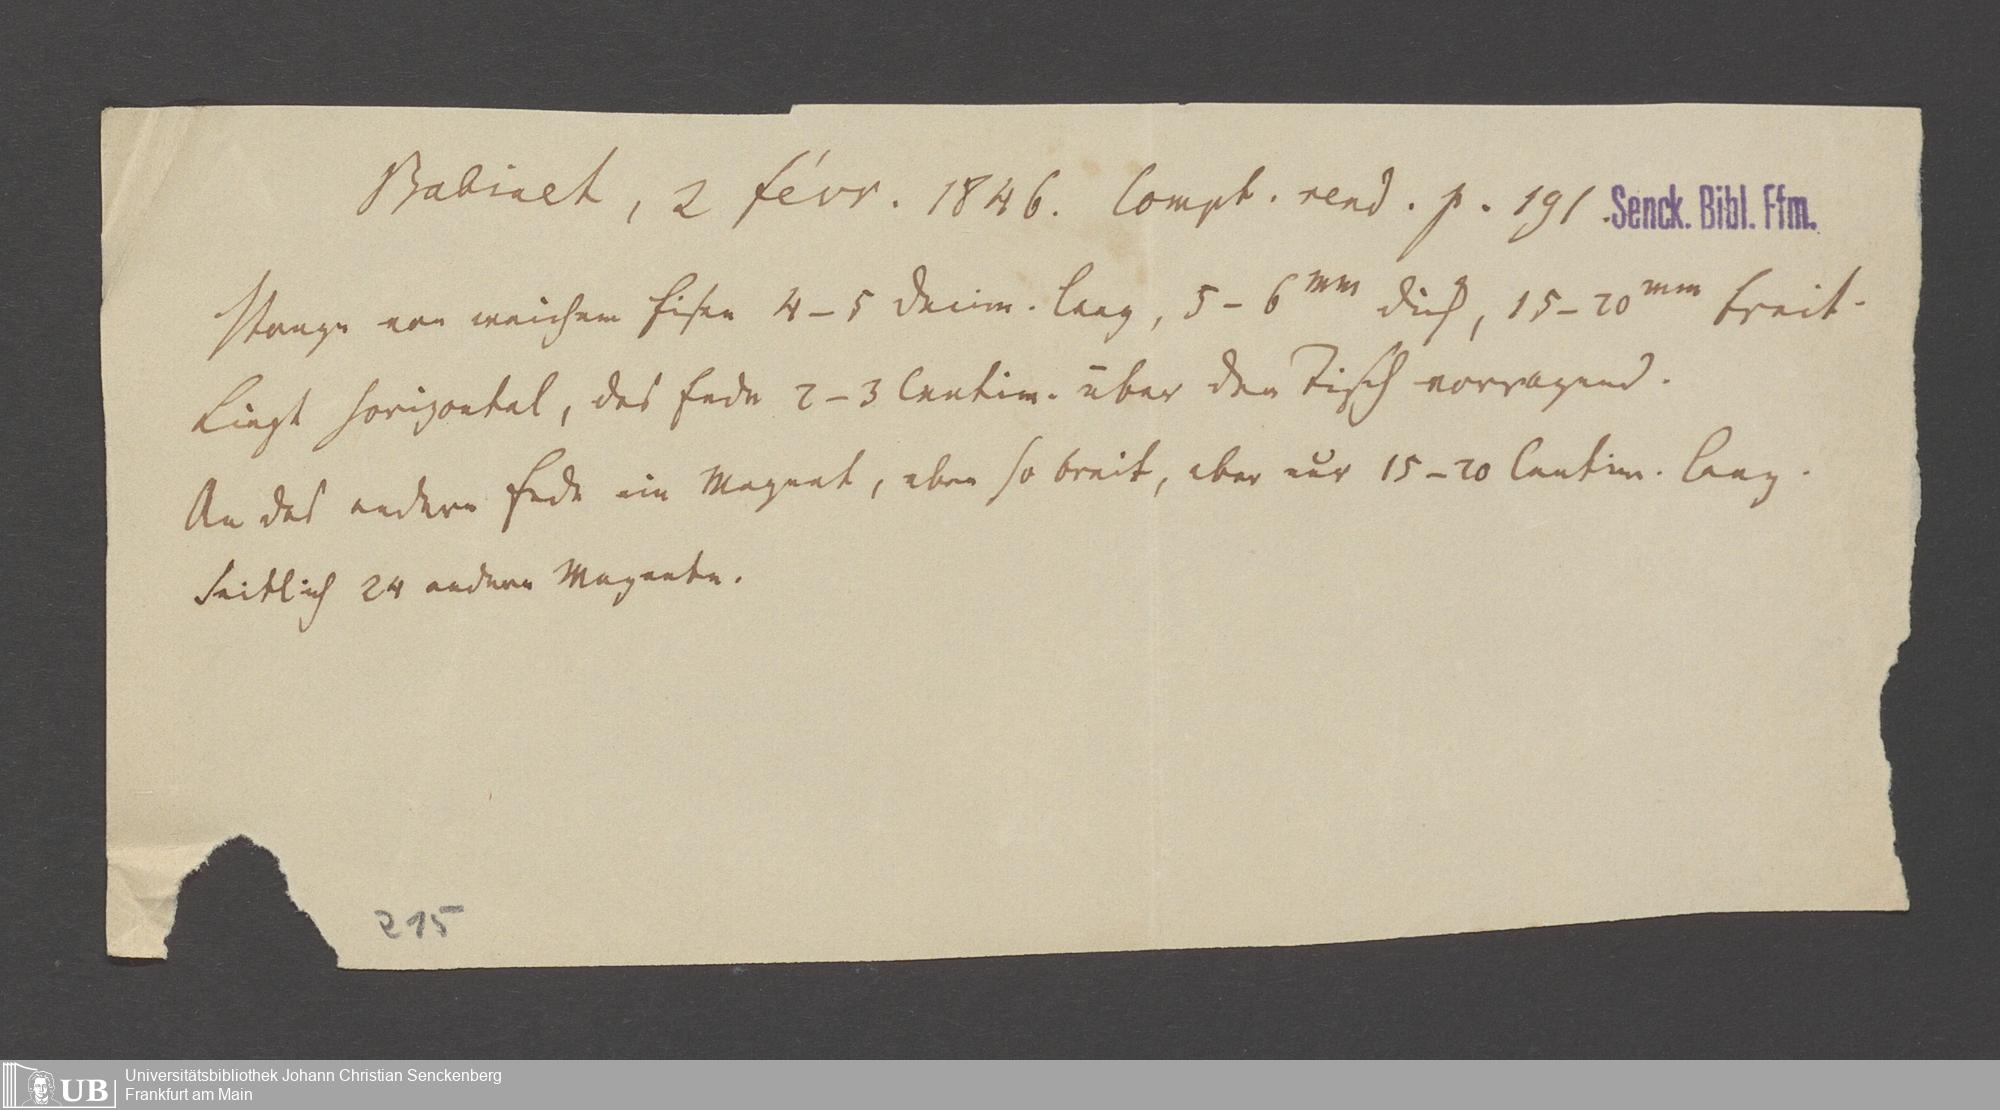 Babinet, 2 févr. 1846. Compt. rend. p. 191.
Senck. Bibl. Ffm.
Stange von weichem Eisen 4–5 Decim. lang, 5–6mm dick, 15–20mm breit.
Liegt horizontal, das Ende 2–3 Centim. über den Tisch vorragend.
An das andere Ende ein Magnet, eben so breit, aber nur 15–20 Centim. lang.
Seitlich 24 andere Magnete.
215
UB
Universitätsbibliothek Johann Christian Senckenberg
Frankfurt am Main